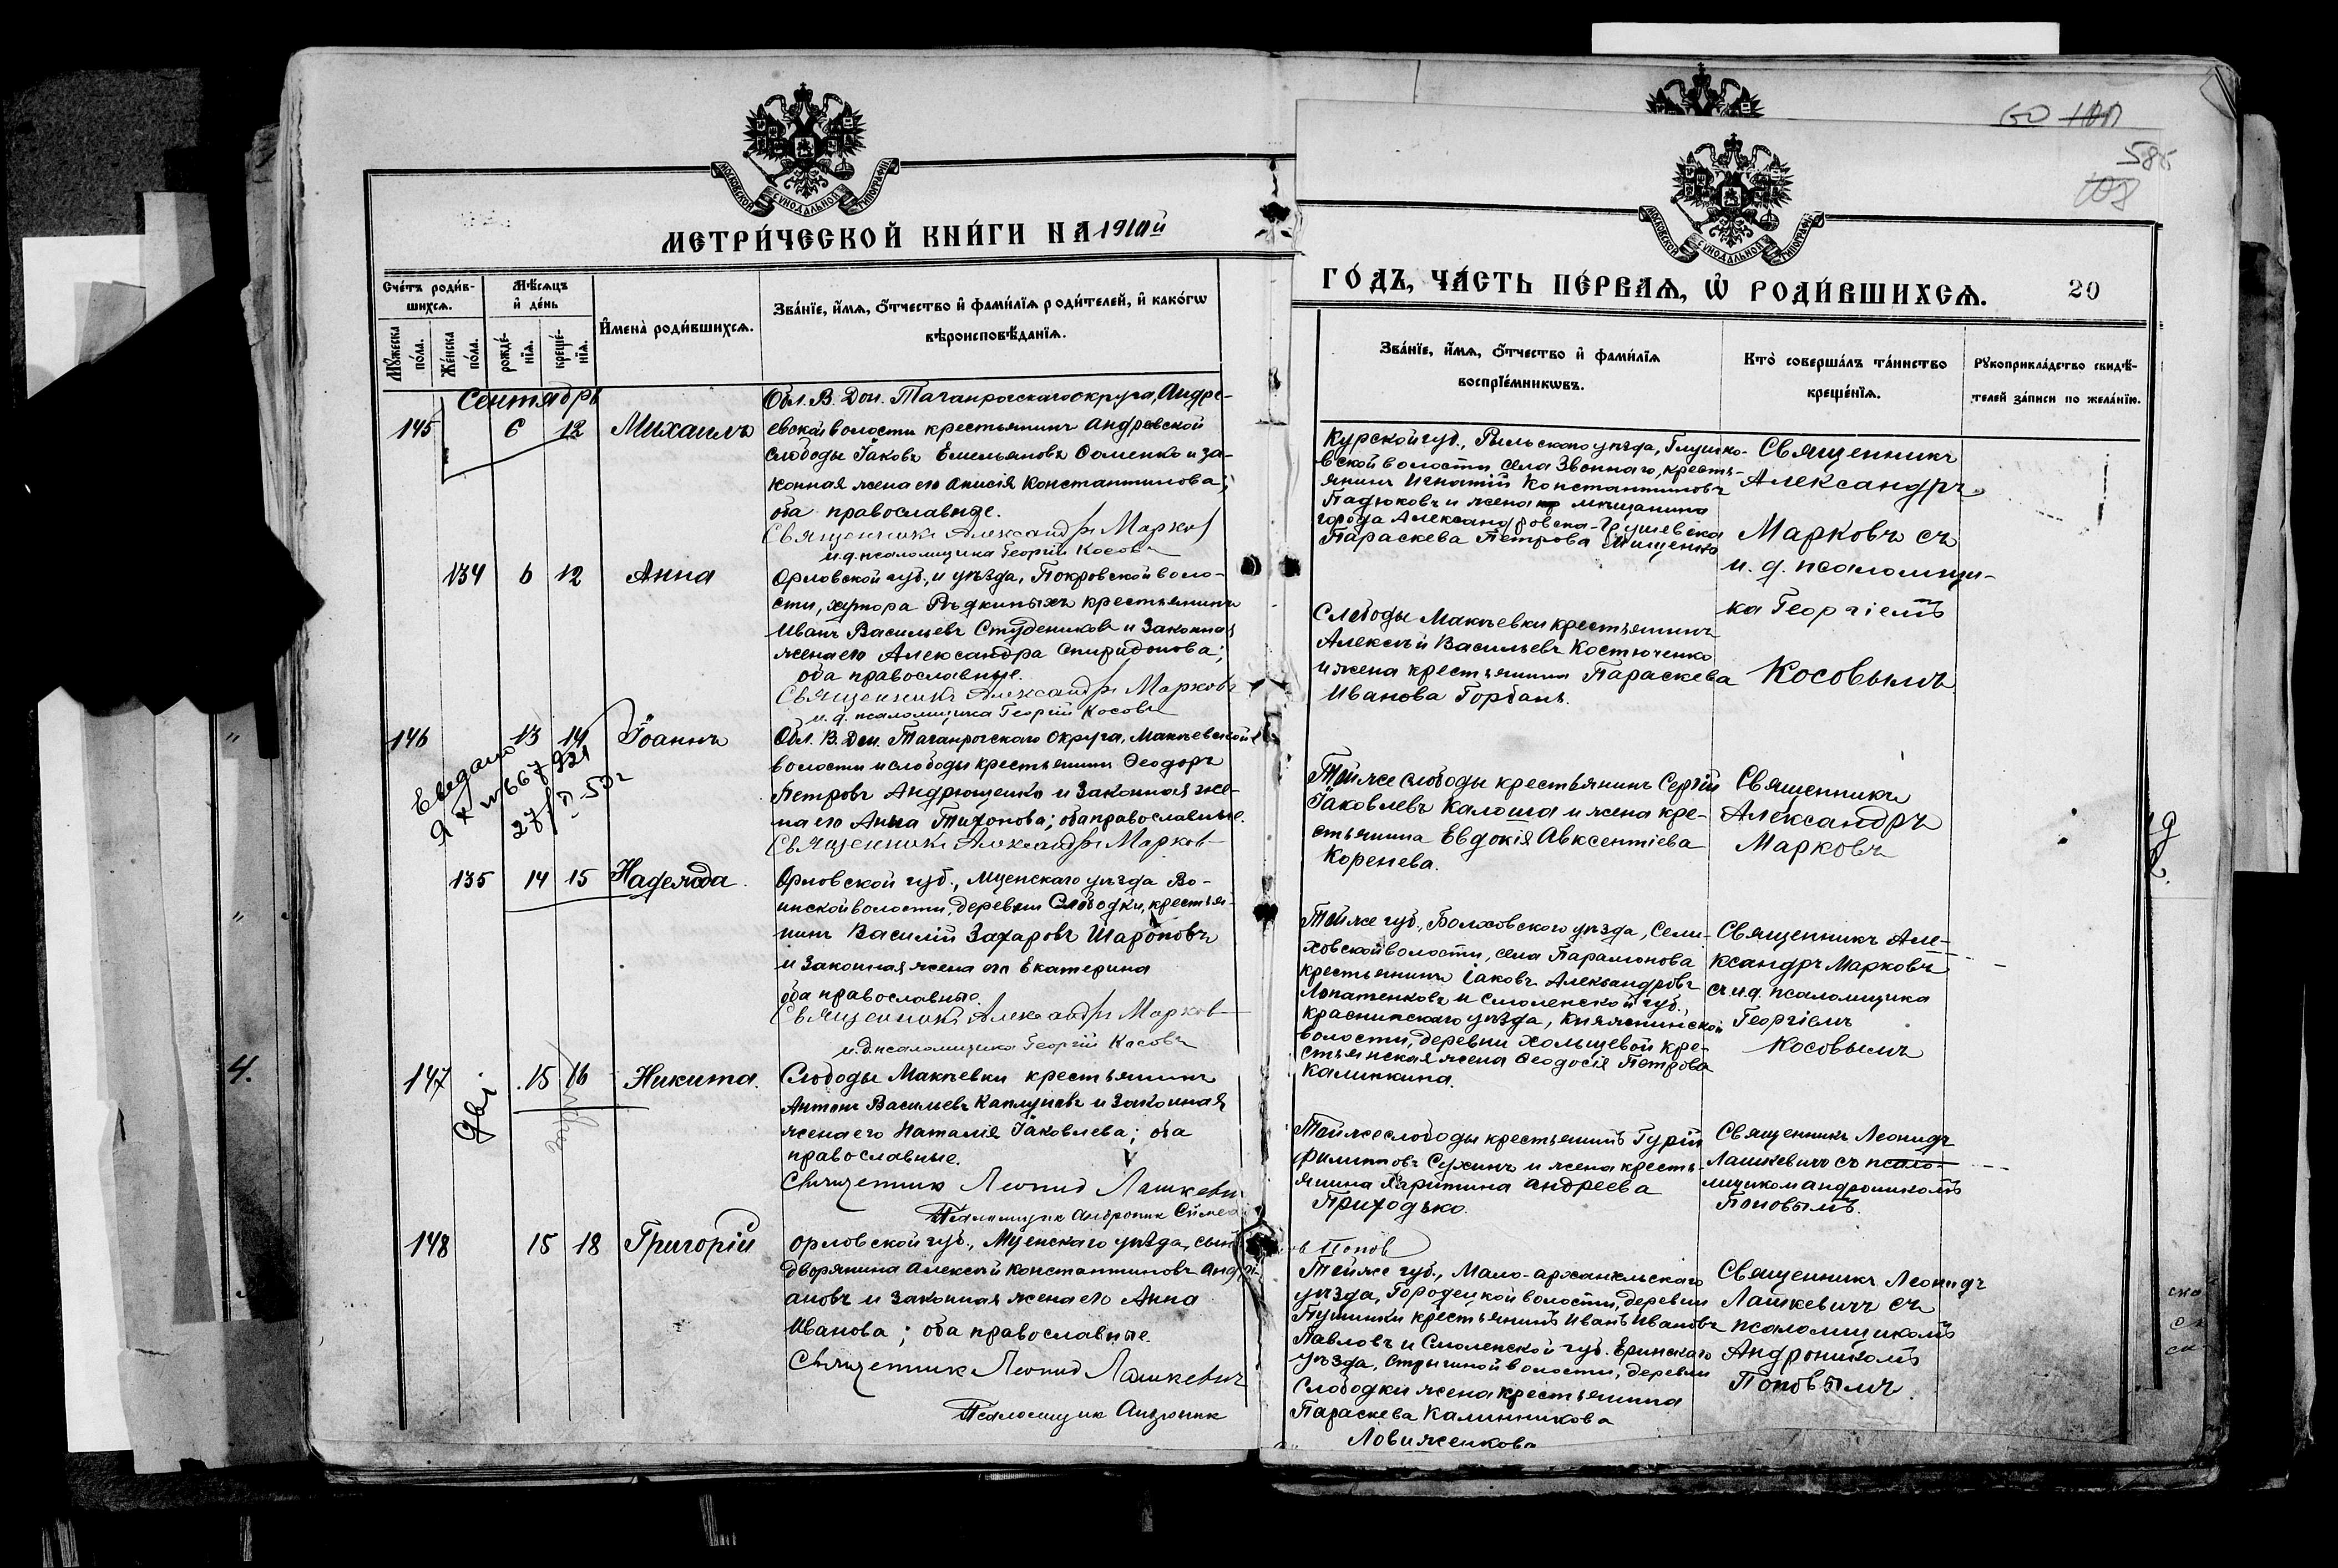 МОСКОВСКОЙ СѴНОДАЛЬНОЙ ТИПОГРАФІИ
МЕТРИ́ЧЕСКОЙ КНИ́ГИ НА 1910й
Сче́тъ роди́в-
шихсѧ.
Мѣ́сѧцъ
и҆ де́нь
И҆мена̀ роди́вшихсѧ.
Зва́нїе, и҆́мѧ, ѻ҆́тчество и҆ фами́лїѧ роди́телей, и҆ како́гѡ
вѣроисповѣ́данїѧ.
Мꙋ́жеска
по́ла.
Же́нска
по́ла.
рожде́-
нїѧ.
креще́-
нїѧ.
Сентябрь
145 6 12 Михаилъ
Обл. В. Дон. Таганрогскаго округа, Андре-
евской волости крестьянинъ Андревской
слободы Іаковъ Емельяновъ Фоменко и за-
конная жена его Анисія Константинова;
оба православные.
Священникъ Александръ Марковъ
и.д. псаломщика Георгій Косовъ
134 6 12 Анна
Орловской губ., и уѣзда, Покровской воло-
сти, хутора Рѣдкиныхъ крестьянинъ
Иванъ Васильевъ Студениковъ и законная
жена его Александра Спиридонова;
оба православные.
Священникъ Александръ Марковъ
и.д. псаломщика Георгій Косовъ
146 13 14 Іоаннъ
Обл. В. Дон. Таганрогскаго Округа, Макѣевской
волости и слободы крестьянинъ Ѳеодоръ
Петровъ Андрющенко и законная же-
на его Анна Тихонова; оба православные.
Священникъ Александръ Марков
135 14 15 Надежда.
Орловской губ., Мценскаго уѣзда Во-
инской волости, деревни Слободки, крестья-
нинъ Василій Захаровъ Шароновъ
и законная жена его Екатерина
оба православные.
Священникъ Александръ Марков
и.д. псаломщика Георгій Косовъ
147 15 16 Никита.
Слободы Макѣевки крестьянинъ
Антонъ Васильевъ Каплуновъ и законная
жена его Наталія Іаковлева; оба
православные.
Священник Леонид Лашкевич
Псаломщик Андроник Симео
148 15 18 Григорій
Орловской губ., Мценскаго уѣзда, сынъ
дворянина Алексѣй Константиновъ Андрі-
ановъ и законная жена его Анна
Иванова; оба православные.
Священник Леонид Лашкевич
Псаломщик Андроник
585
108
МОСКОВСКОЙ СѴНОДАЛЬНОЙ ТИПОГРАФІИ
ГО́ДЪ, ЧА́СТЬ ПЕ́РВАѦ, Ѡ҆ РОДИ́ВШИХСѦ.
20
Зва́нїе, и҆́мѧ, ѻ҆́тчество и҆ фами́лїѧ
воспрїе́мникѡвъ.
Кто̀ соверша́лъ та́инство
креще́нїѧ.
Рꙋкоприкла́дство свидѣ́-
телей за́писи по жела́нїю.
Курской губ., Рыльскаго уѣзда, Глушко-
вской волости села Звоннаго, кресть-
янинъ Игнатій Константиновъ
Падюковъ и жена мѣщанина
города Александровска-Грушевска
Параскева Петрова Мищенко
Священникъ
Александръ
Марковъ съ
и. д. псаломщи-
ка Георгіемъ
Косовымъ
Слободы Макѣевки крестьянинъ
Алексѣй Васильевъ Костюченко
и жена крестьянина Параскева
Иванова Горбань.
Той же слободы крестьянинъ Сергій
Іаковлевъ Калоша и жена кре-
стьянина Евдокія Авксентіева
Коренева.
Священникъ
Александръ
Марковъ
Той же губ., Болховского уѣзда, Сели-
ховской волости, села Парамонова
крестьянинъ Іаковъ Александровъ
Лопатенковъ и Смоленской губ.,
Краснинскаго уѣзда, Княжинской
волости, деревни Холщевой кре-
стьянская жена Ѳеодосія Петрова
Калинкина.
Священникъ Але-
ксандръ Марковъ
съ и.д. псаломщика
Георгіемъ
Косовымъ
Той же слободы крестьянинъ Гурій
Филиповъ Сухинъ и жена кресть-
янина Харитина Андреева
Приходько.
Священникъ Леонидъ
Лашкевичъ съ псало-
мщикомъ Андроникомъ
Поповымъ.
в Попов
Той же губ., Мало-архангельскаго
уѣзда, Городецкой волости, деревни
Пушинки крестьянинъ Иванъ Ивановъ
Павловъ и Смоленской губ. Ельнинскаго
уѣзда, Стрыгиной волости, деревни
Слободки жена крестьянина
Параскева Калинникова
Ловиженкова
Священникъ Леонидъ
Лашкевичъ съ
псаломщикомъ
Андроникомъ
Поповымъ.
4.